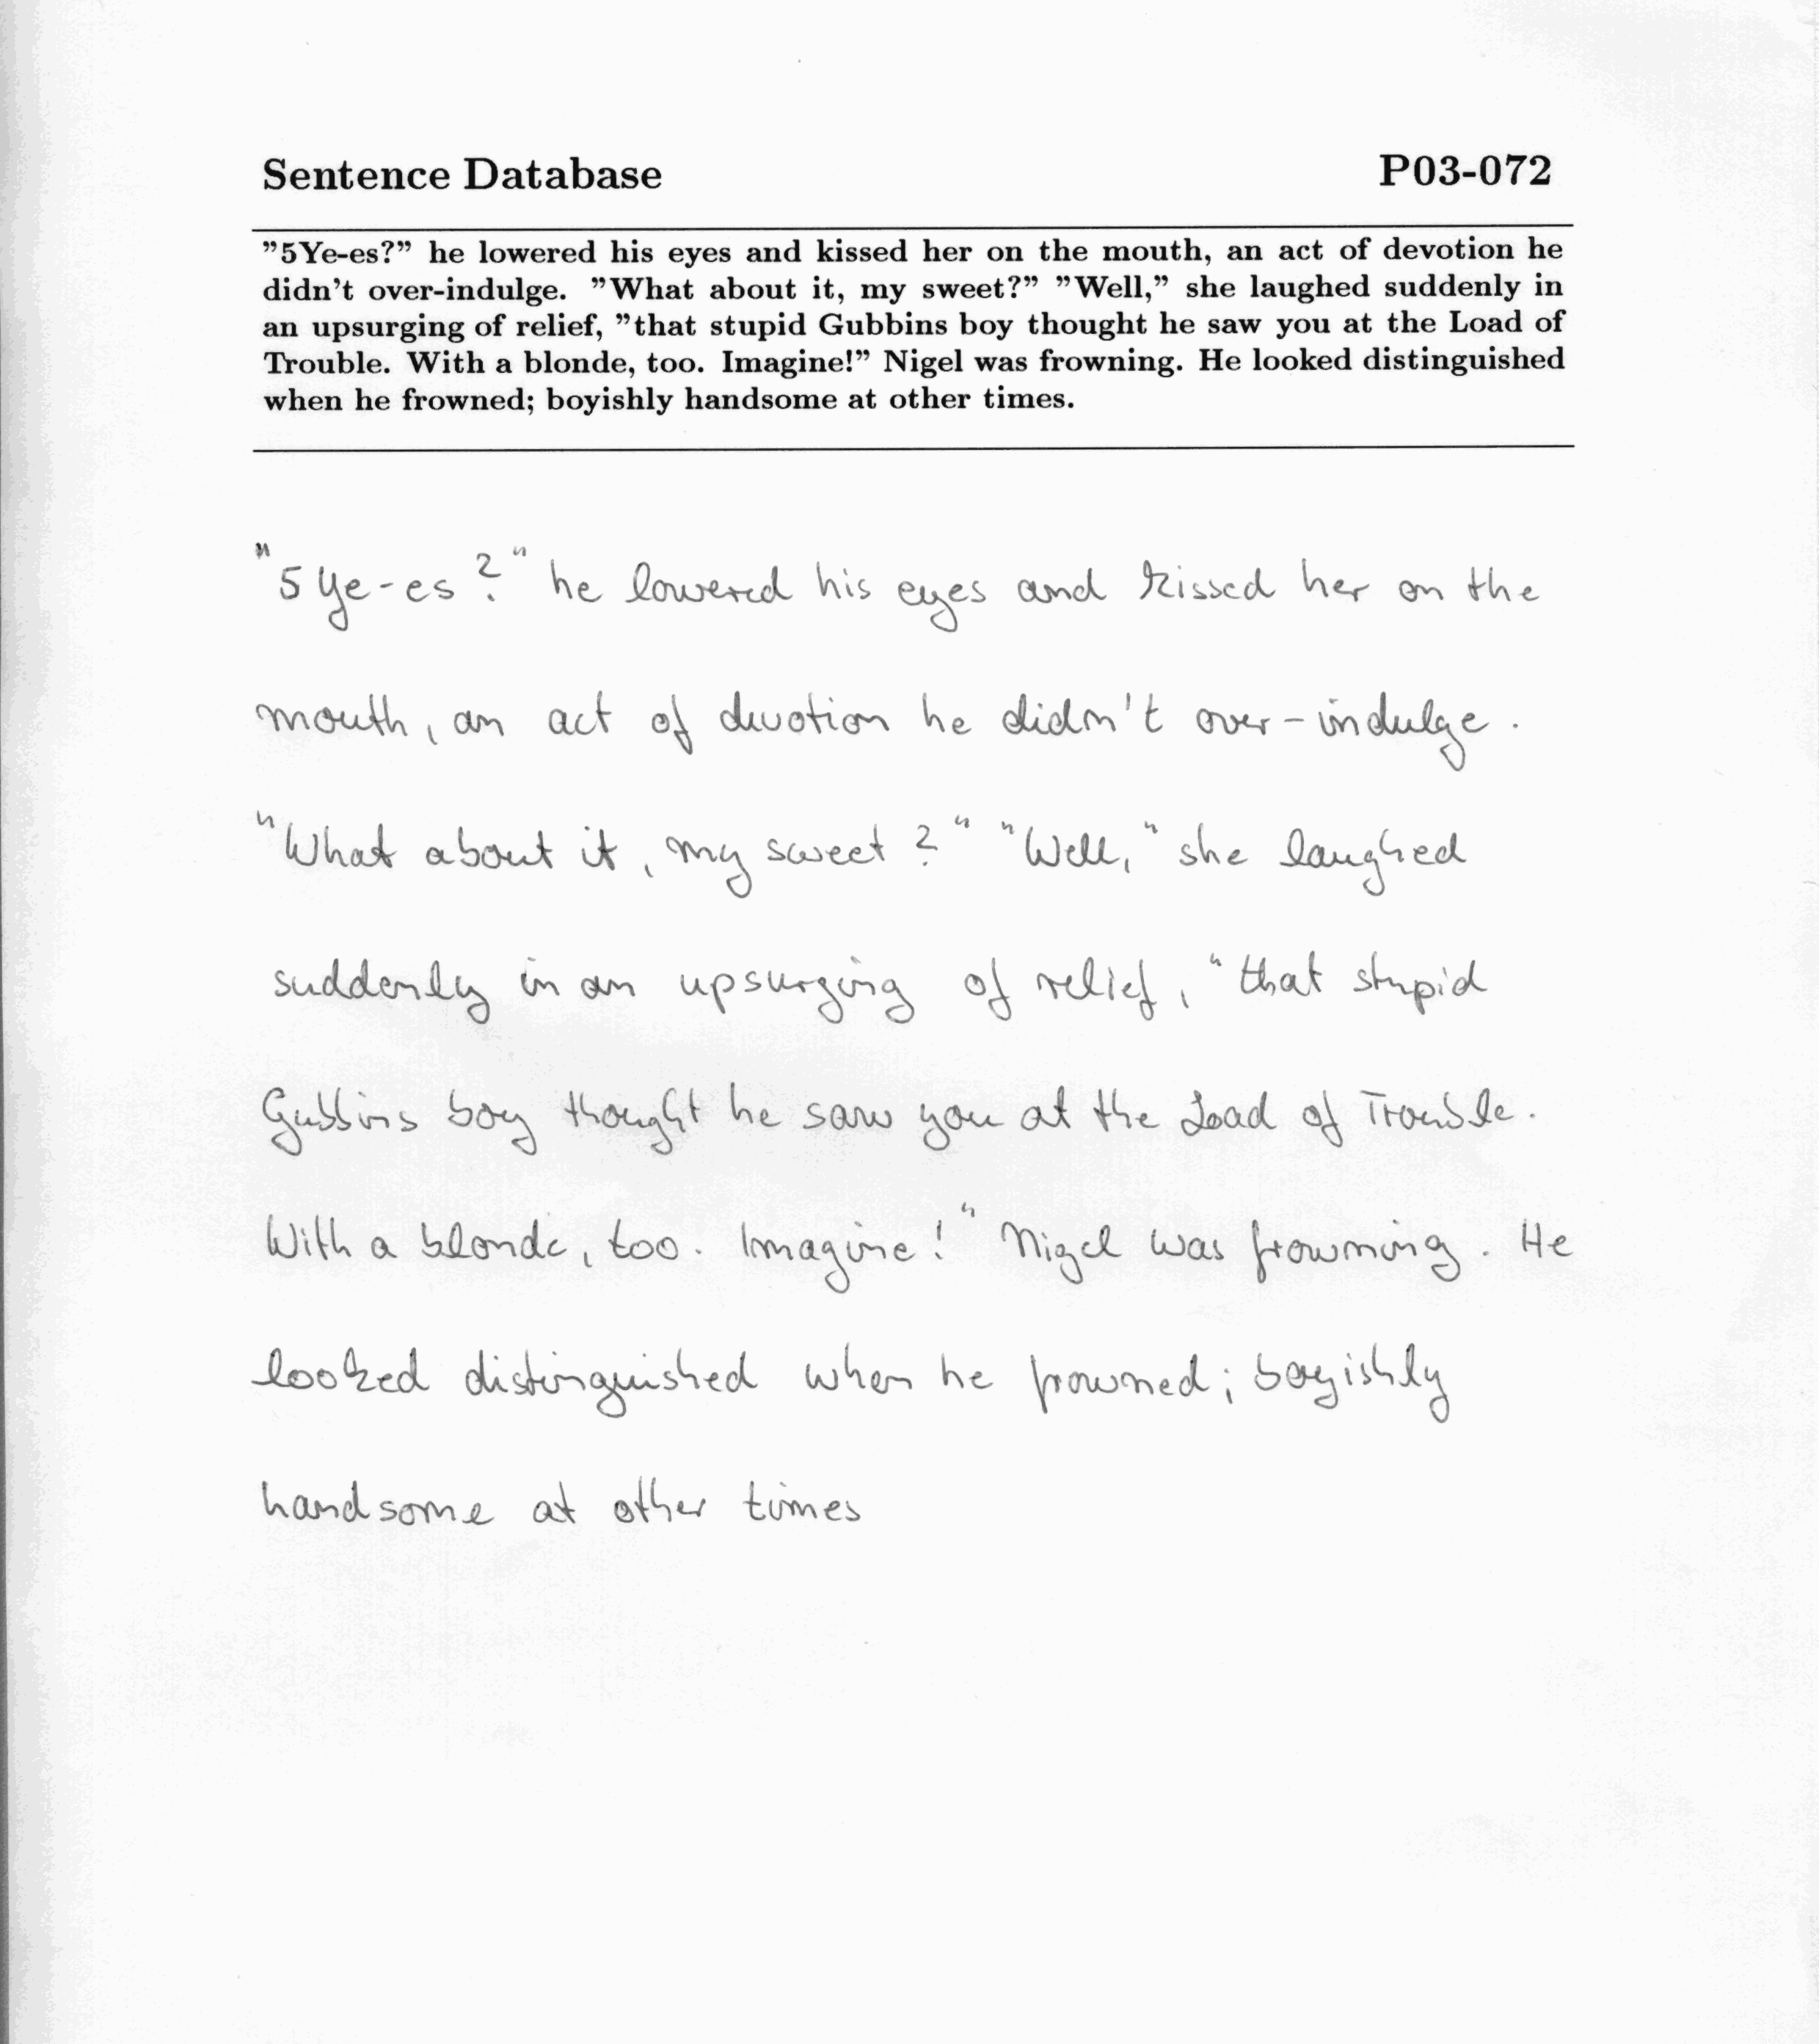 Sentence Database P03-072
"5Ye-es?" he lowered his eyes and kissed her on the mouth, an act of devotion he
didn't over-indulge. "What about it, my sweet?" "Well," she laughed suddenly in
an upsurging of relief, "that stupid Gubbins boy thought he saw you at the Load of
Trouble. With a blonde, too. Imagine!" Nigel was frowning. He looked distinguished
when he frowned; boyishly handsome at other times.
"5 Ye-es?" he lowered his eyes and kissed her on the
mouth, an act of devotion he didn't over-indulge.
"What about it, my sweet?" "Well," she laughed
suddenly in an upsurging of relief, "that stupid
Gubbins boy thought he saw you at the Load of Trouble.
With a blonde, too. Imagine!" Nigel was frowning. He
looked distinguished when he frowned; boyishly
handsome at other times